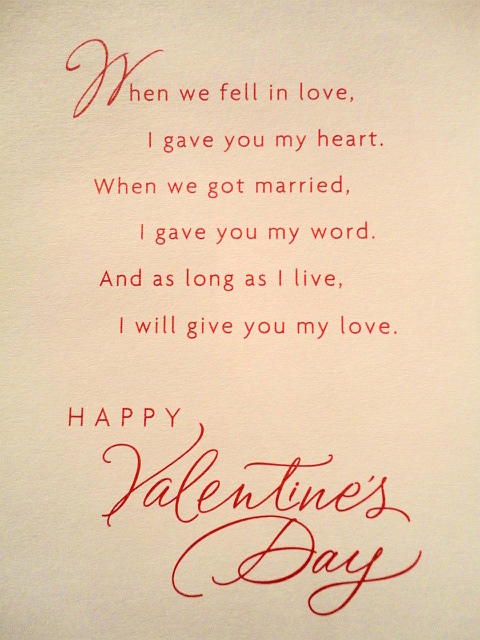 When we fell in love,
I gave you my heart.
When we got married,
I gave you my word.
And as long as I live,
I will give you my love.
HAPPY
Valentine's
Day